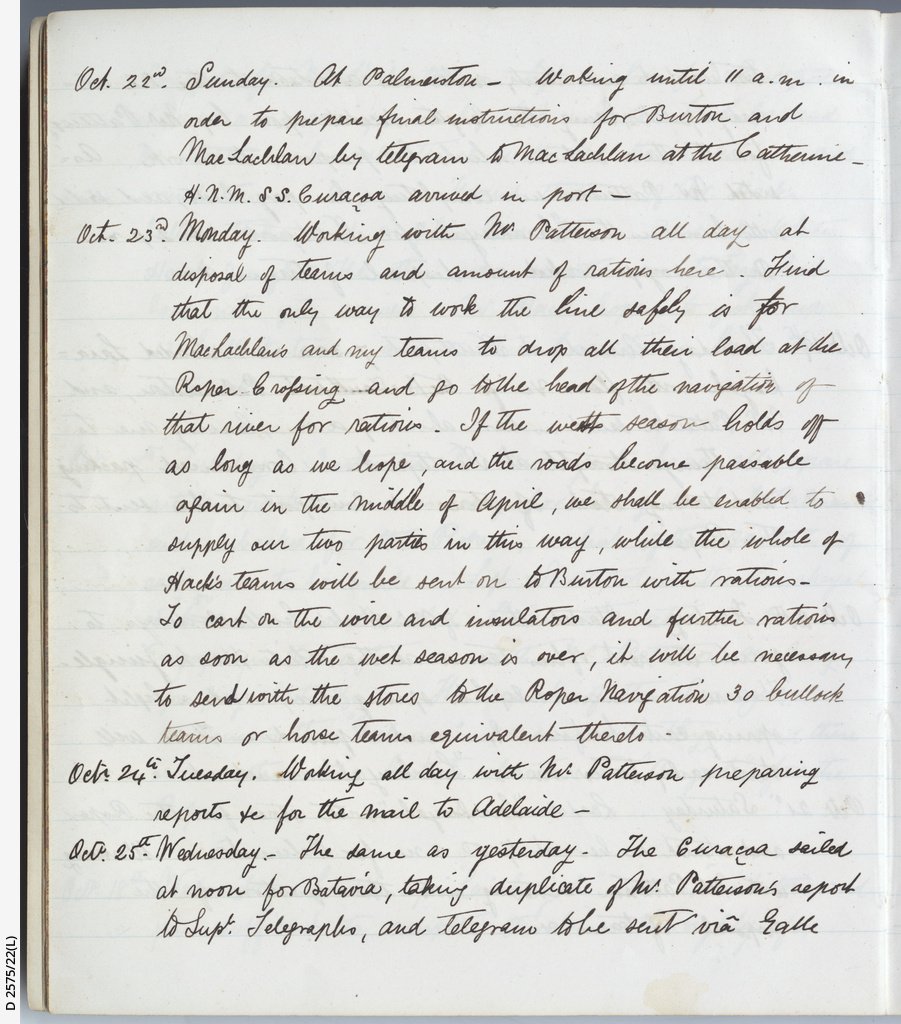 Oct. 22nd. Sunday. At Palmerston – Working until 11 a.m. in
order to prepare final instructions for Burton and
MacLachlan by telegram to MacLachlan at the Catherine –
H.N.M.S.S. Curaçoa arrived in port –
Oct. 23rd. Monday. Working with Mr. Patterson all day at
disposal of teams and amount of rations here. Find
that the only way to work the line safely is for
MacLachlan's and my teams to drop all their load at the
Roper Crossing and go to the head of the navigation of
that river for rations. If the wett season holds off
as long as we hope, and the roads become passable
again in the middle of April, we shall be enabled to
supply our two parties in this way, while the whole of
Hack's teams will be sent on to Burton with rations –
To cart on the wire and insulators and further rations
as soon as the wet season is over, it will be necessary
to send with the stores to the Roper Navigation 30 bullock
teams or horse teams equivalent thereto –
Octr. 24th. Tuesday. Working all day with Mr. Patterson preparing
reports &c for the mail to Adelaide –
Octr. 25th. Wednesday. – The same as yesterday – The Curaçoa sailed
at noon for Batavia, taking duplicate of Mr. Patterson's report
to Supt. Telegraphs, and telegram to be sent via Galle
D 2575/22(L)